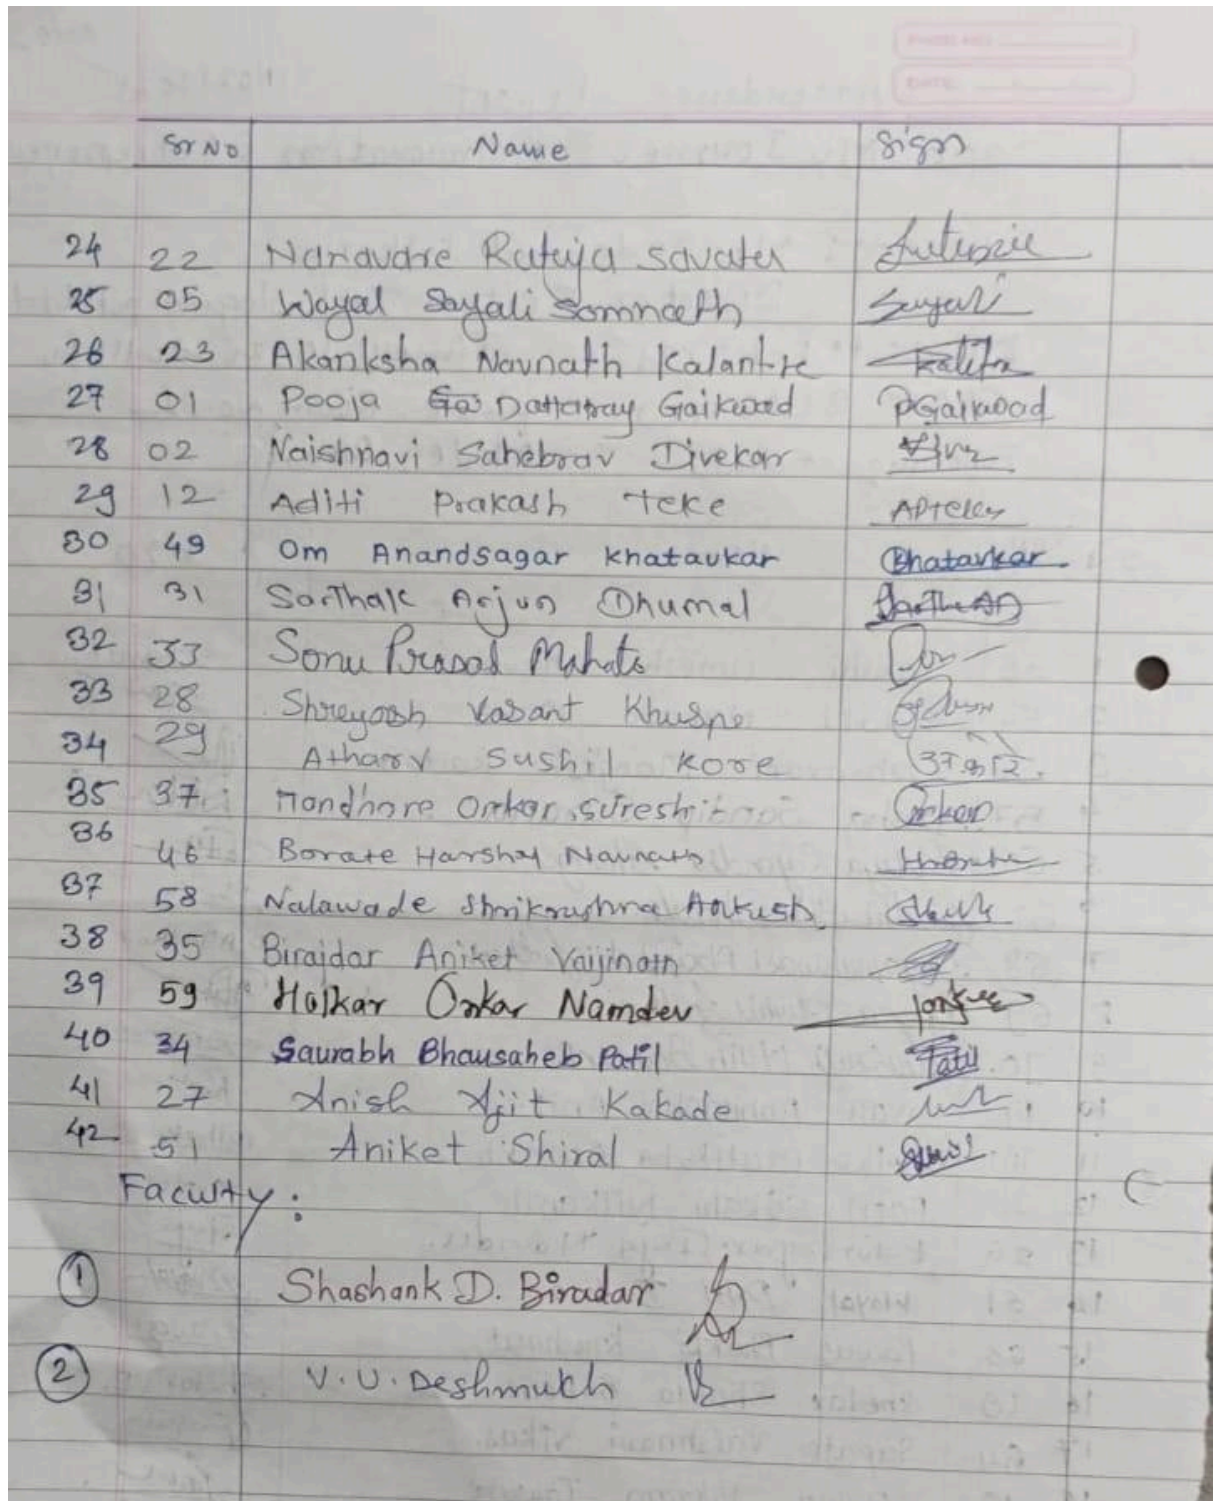 Sr No Name Sign
24 22 Nanavare Rutuja Savata
25 05 Wayal Sayali Somnath Sayali
26 23 Akanksha Navnath Kalantre
27 01 Pooja Dattatray Gaikwad PGaikwad
28 02 Naishnavi Sahebrav Divekar
29 12 Aditi Prakash Teke APTeke
30 49 Om Anandsagar Khatavkar Khatavkar
31 31 Sarthak Arjun Dhumal
32 33 Sonu Prasad Mahato
33 28 Shreyash Vasant Khuspe
34 29 Atharv Sushil Kore
35 37 Mondhare Omkar Suresh Omkar
36 46 Borate Harshal Navnath
37 58 Nalawade Shrikrushna Ankush
38 35 Birajdar Aniket Vaijinath
39 59 Halkar Onkar Namdev
40 34 Saurabh Bhausaheb Patil Patil
41 27 Anish Ajit Kakade
42 51 Aniket Shiral
Faculty :
1 Shashank D. Biradar
2 V. U. Deshmukh